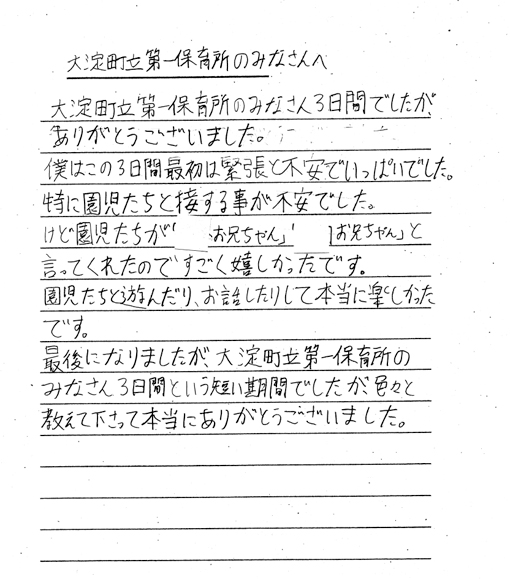 大淀町立第一保育所のみなさんへ
大淀町立第一保育所のみなさん3日間でしたが、
ありがとうございました。
僕はこの3日間最初は緊張と不安でいっぱいでした。
特に園児たちと接する事が不安でした。
けど園児たちが「 お兄ちゃん」「 お兄ちゃん」と
言ってくれたのですごく嬉しかったです。
園児たちと遊んだり、お話したりして本当に楽しかった
です。
最後になりましたが、大淀町立第一保育所の
みなさん3日間という短い期間でしたが色々と
教えて下さって本当にありがとうございました。